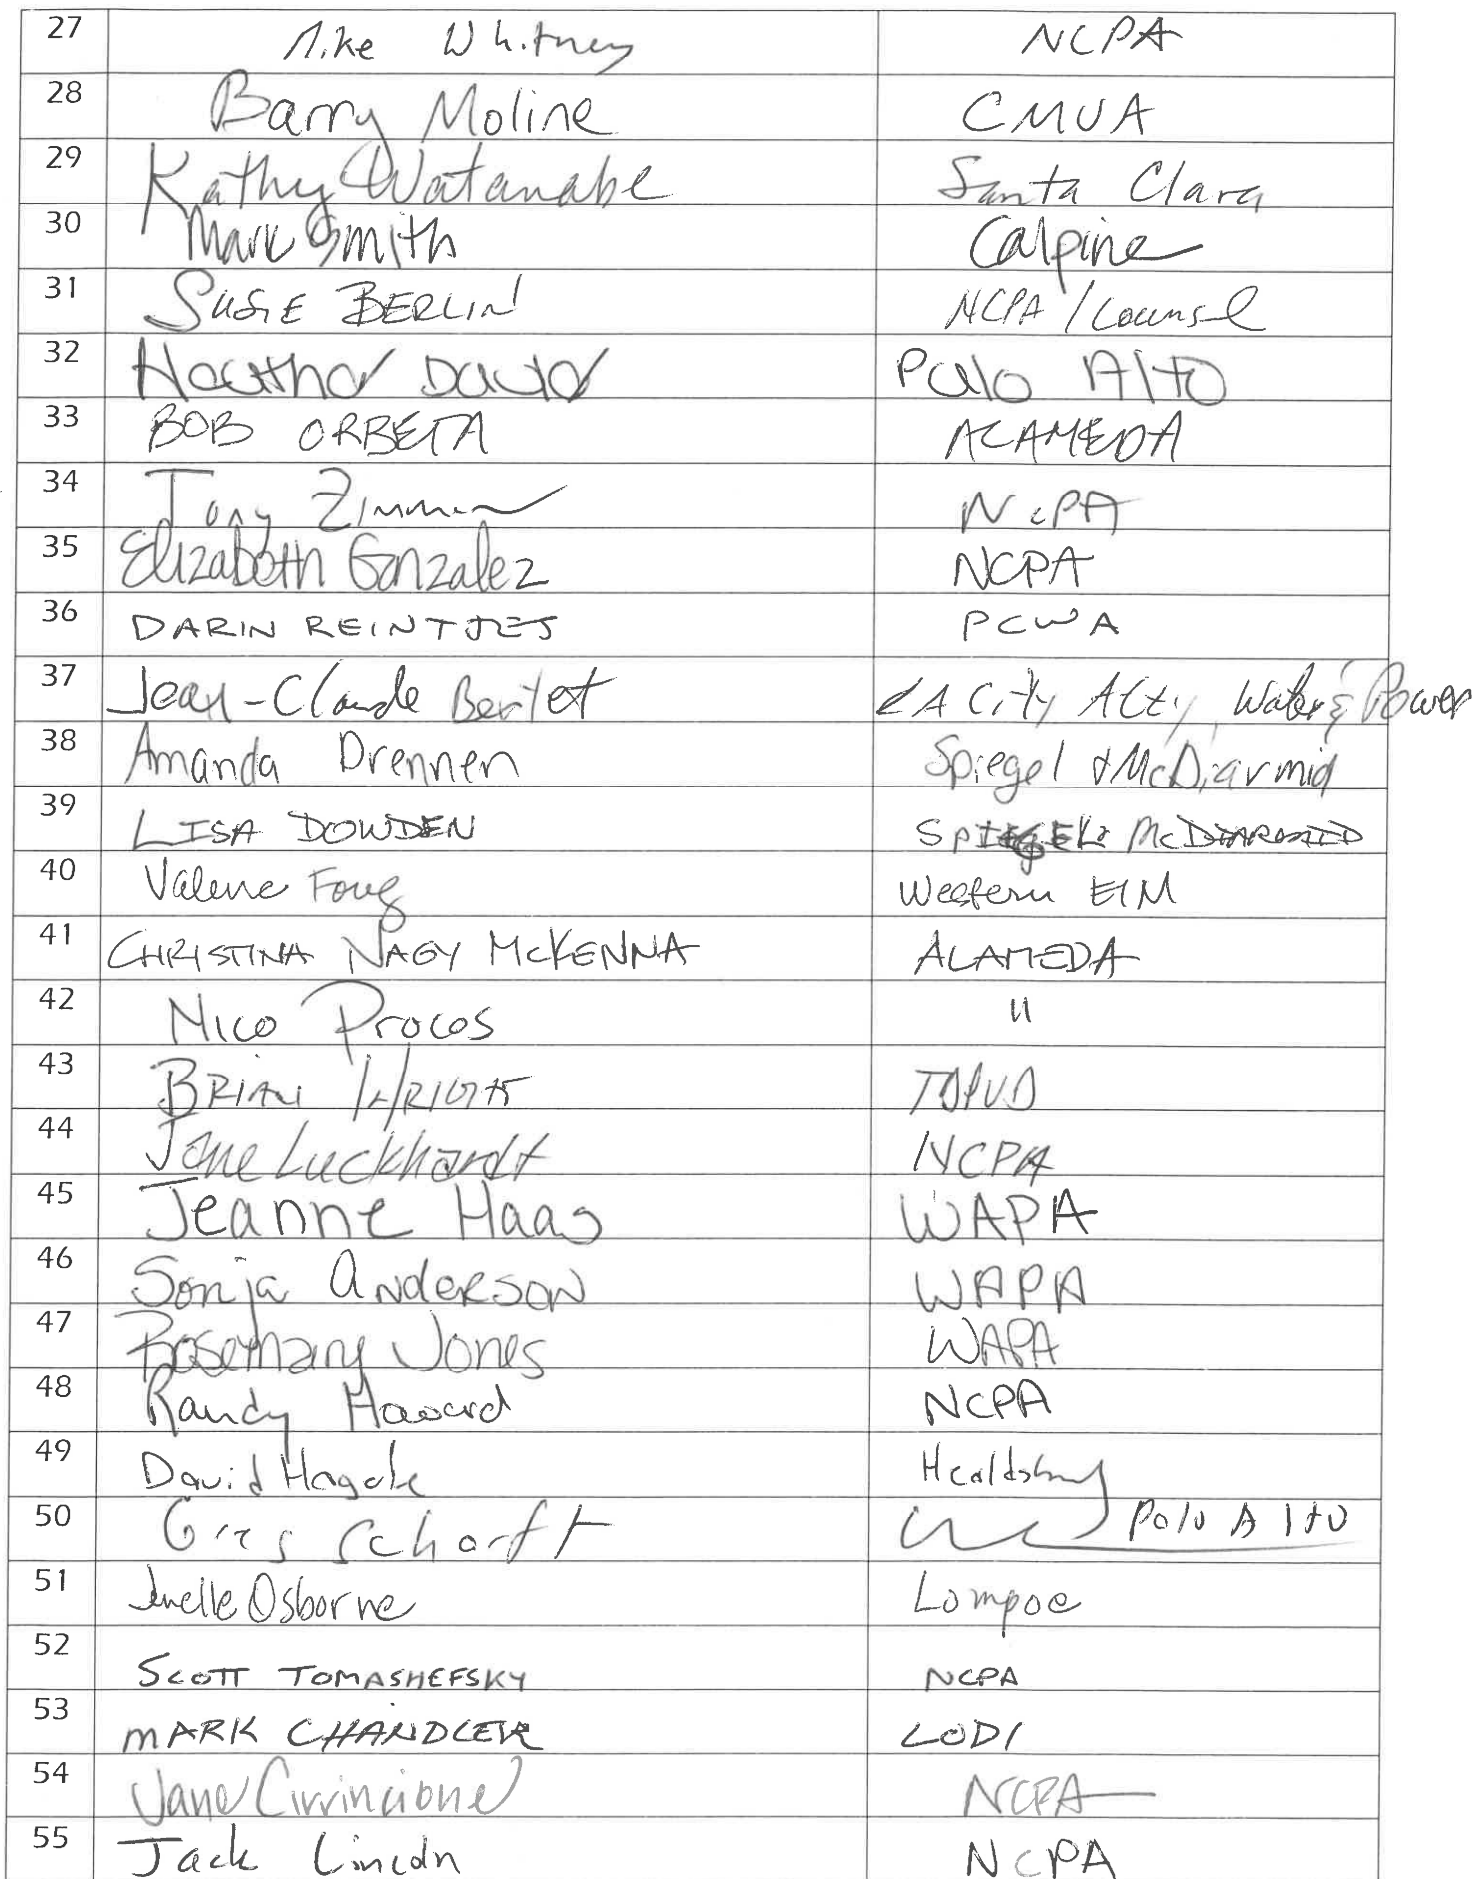 27 Mike Whitney NCPA
28 Barry Moline CMUA
29 Kathy Watanabe Santa Clara
30 Mark Smith Calpine
31 SUSIE BERLIN NCPA / Counsel
32 Heather David Palo Alto
33 BOB ORBETA ALAMEDA
34 Tony Zimmer NCPA
35 Elizabeth Gonzalez NCPA
36 DARIN REINTJES PCWA
37 Jean-Claude Bertet LA City Atty, Water & Power
38 Amanda Drennen Spiegel & McDiarmid
39 LISA DOWDEN SPIEGEL & McDIARMID
40 Valerie Fong Western EIM
41 CHRISTINA NAGY MCKENNA ALAMEDA
42 Nico Procos "
43 BRIAN WRIGHT TDPUD
44 Jane Luckhardt NCPA
45 Jeanne Haas WAPA
46 Sonja Anderson WAPA
47 Rosemary Jones WAPA
48 Randy Howard NCPA
49 David Hagele Healdsburg
50 Greg Scharff Palo Alto
51 Jenelle Osborne Lompoc
52 SCOTT TOMASHEFSKY NCPA
53 MARK CHANDLER LODI
54 Jane Cirrincione NCPA
55 Jack Lincoln NCPA